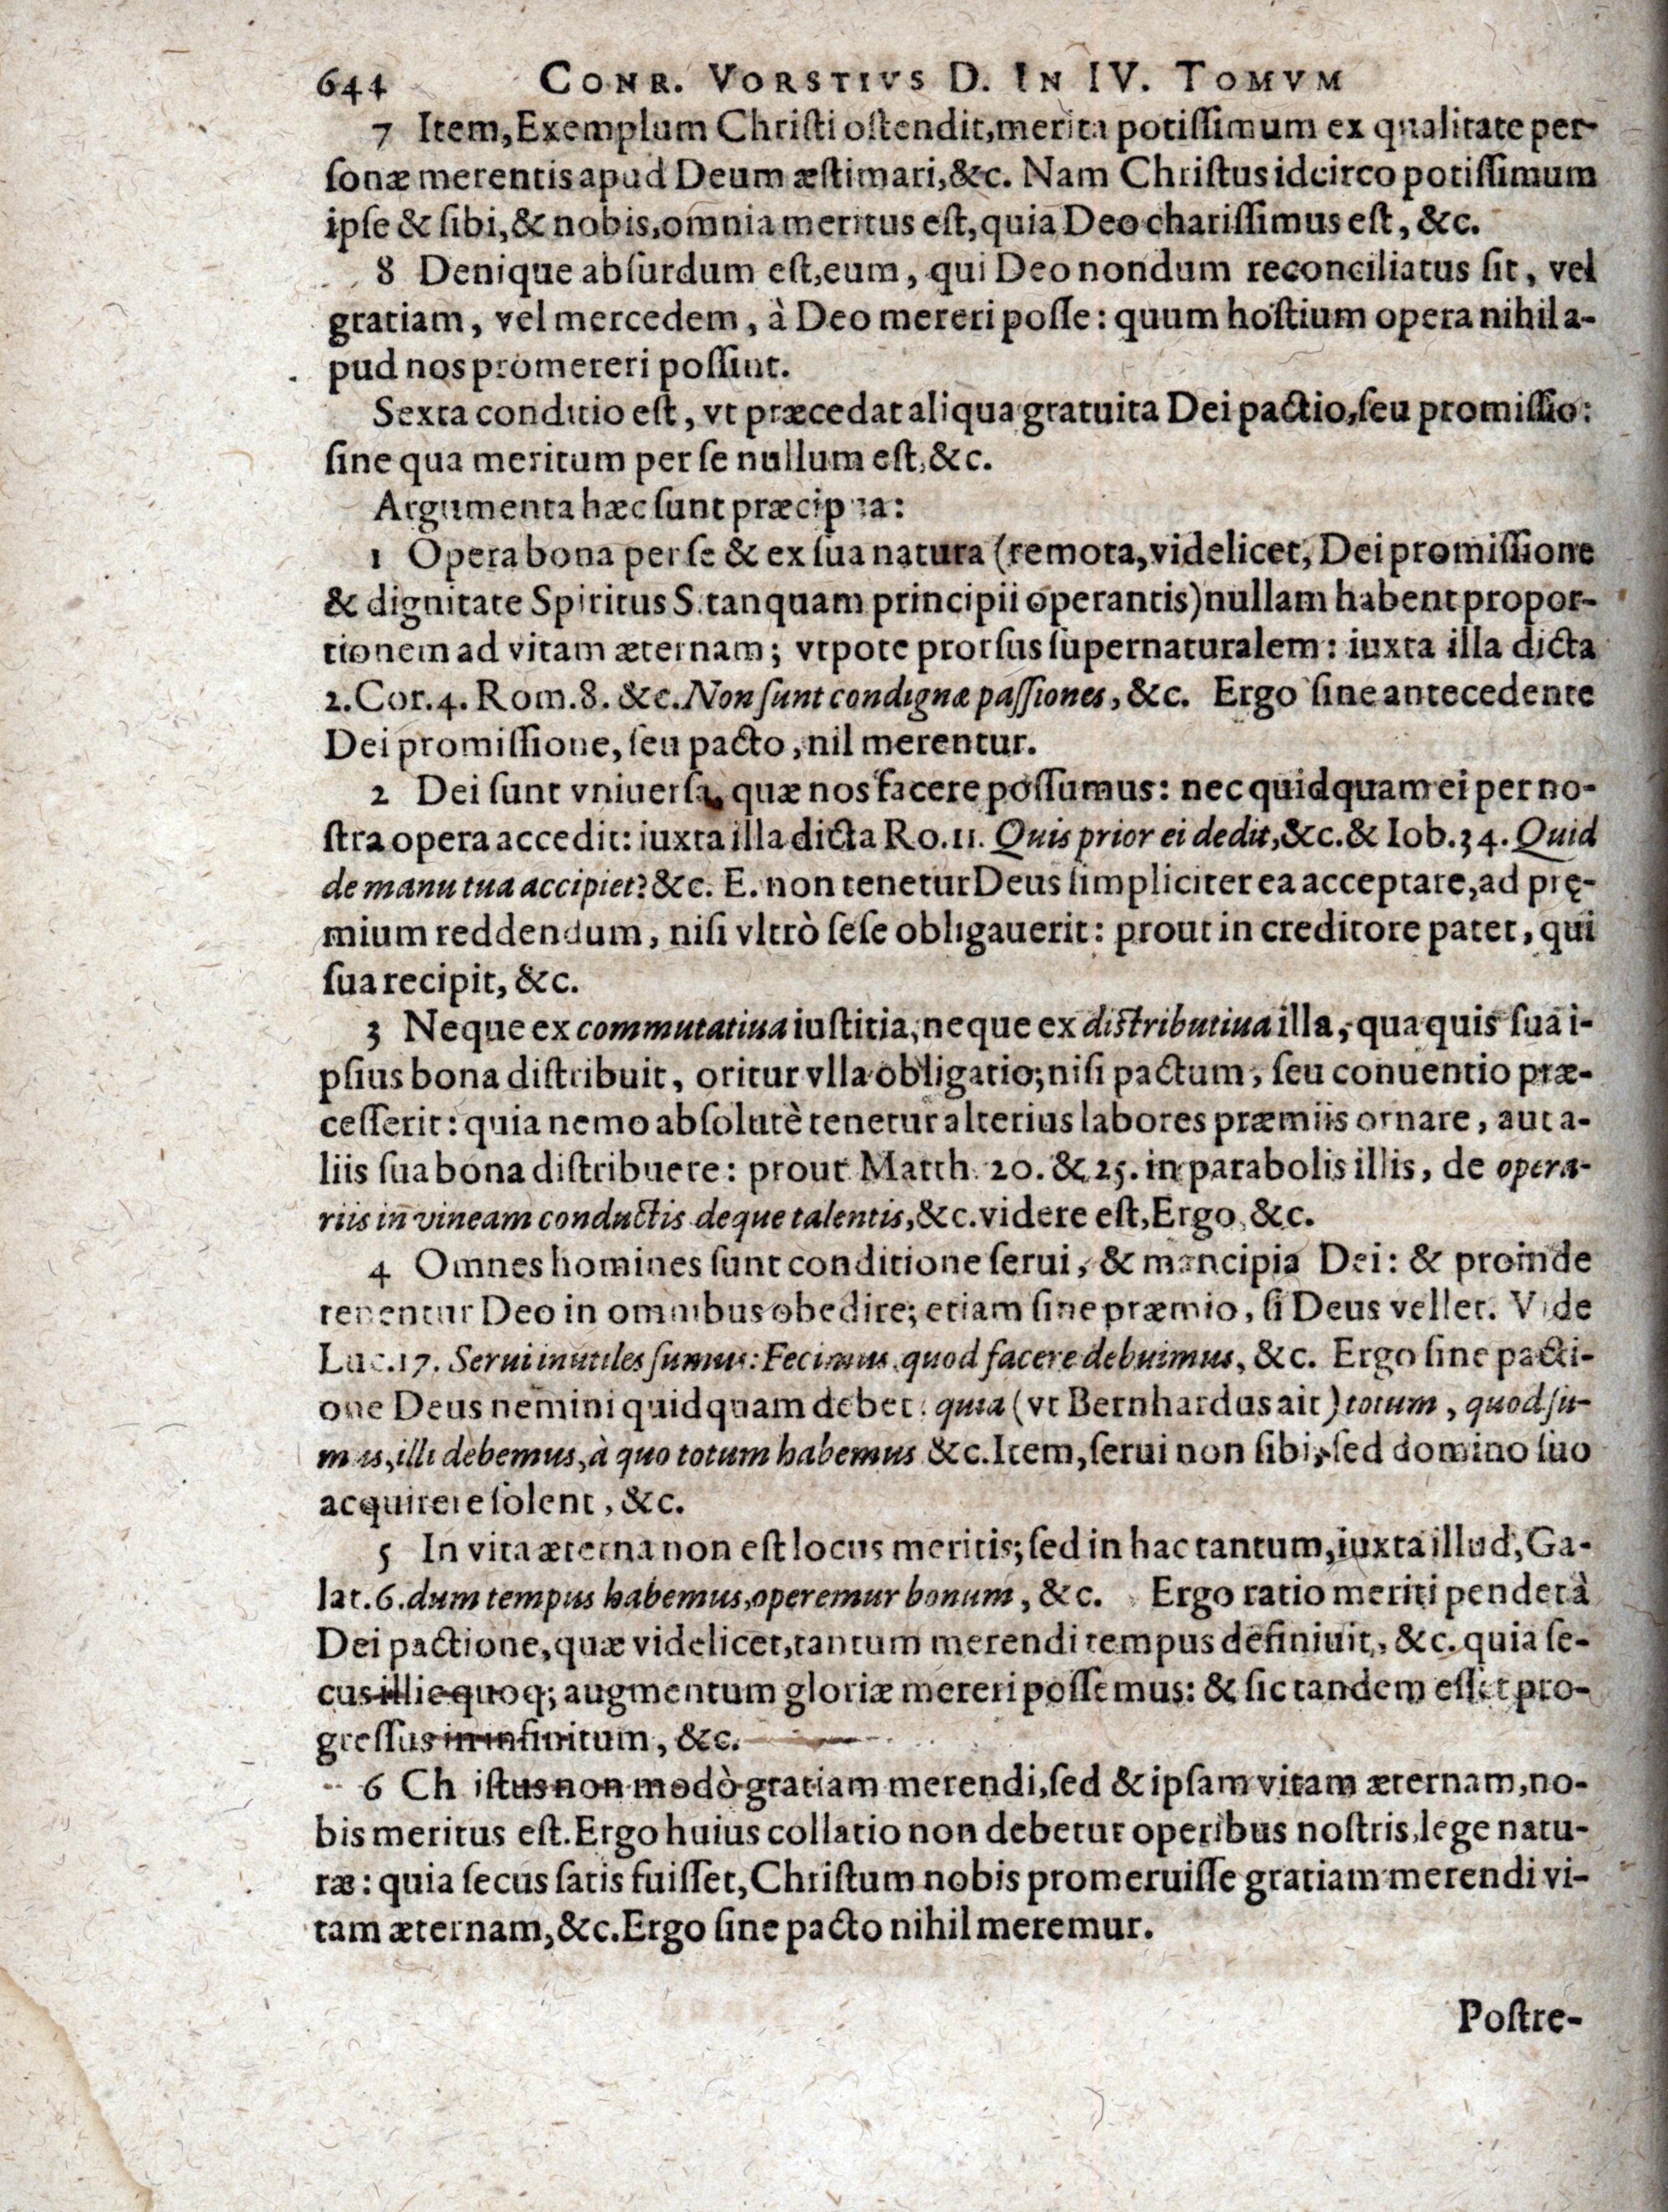 644 CONR. VORSTIVS D. IN IV. TOMVM
7 Item, Exemplum Christi ostendit, merita potissimum ex qualitate per-
sonæ merentis apud Deum æstimari, &c. Nam Christus idcirco potissimum
ipse & sibi, & nobis, omnia meritus est, quia Deo charissimus est, &c.
8 Denique absurdum est, eum, qui Deo nondum reconciliatus sit, vel
gratiam, vel mercedem, à Deo mereri posse: quum hostium opera nihil a-
pud nos promereri possint.
Sexta conditio est, vt præcedat aliqua gratuita Dei pactio, seu promissio:
sine qua meritum per se nullum est, &c.
Argumenta hæc sunt præcipua:
1 Opera bona per se & ex sua natura (remota, videlicet, Dei promissione
& dignitate Spiritus S. tanquam principii operantis) nullam habent propor-
tionem ad vitam æternam; vtpote prorsus supernaturalem: iuxta illa dicta
2. Cor. 4. Rom. 8. &c. Non sunt condignæ passiones, &c. Ergo sine antecedente
Dei promissione, seu pacto, nil merentur.
2 Dei sunt vniuersa, quæ nos facere possumus: nec quidquam ei per no-
stra opera accedit: iuxta illa dicta Ro. 11. Quis prior ei dedit, &c. & Iob. 34. Quid
de manu tua accipiet? &c. E. non tenetur Deus simpliciter ea acceptare, ad prę-
mium reddendum, nisi vltrò sese obligauerit: prout in creditore patet, qui
sua recipit, &c.
3 Neque ex commutatiua iustitia, neque ex distributiua illa, qua quis sua i-
psius bona distribuit, oritur vlla obligatio; nisi pactum, seu conuentio præ-
cesserit: quia nemo absolutè tenetur alterius labores præmiis ornare, aut a-
liis sua bona distribuere: prout Matth. 20. & 25. in parabolis illis, de opera-
riis in vineam conductis deque talentis, &c. videre est, Ergo, &c.
4 Omnes homines sunt conditione serui, & mancipia Dei: & proinde
tenentur Deo in omnibus obedire; etiam sine præmio, si Deus vellet. Vide
Luc. 17. Serui inutiles sumus: Fecimus, quod facere debuimus, &c. Ergo sine pacti-
one Deus nemini quidquam debet: quia (vt Bernhardus ait) totum, quod su-
mus, illi debemus, à quo totum habemus &c. Item, serui non sibi, sed domino suo
acquirere solent, &c.
5 In vita æterna non est locus meritis; sed in hac tantum, iuxta illud, Ga-
lat. 6. dum tempus habemus, operemur bonum, &c. Ergo ratio meriti pendet à
Dei pactione, quæ videlicet, tantum merendi tempus definiuit, &c. quia se-
cus illic quoq; augmentum gloriæ mereri possemus: & sic tandem esset pro-
gressus in infinitum, &c.
6 Christus non modò gratiam merendi, sed & ipsam vitam æternam, no-
bis meritus est. Ergo huius collatio non debetur operibus nostris, lege natu-
ræ: quia secus satis fuisset, Christum nobis promeruisse gratiam merendi vi-
tam æternam, &c. Ergo sine pacto nihil meremur.
Postre-